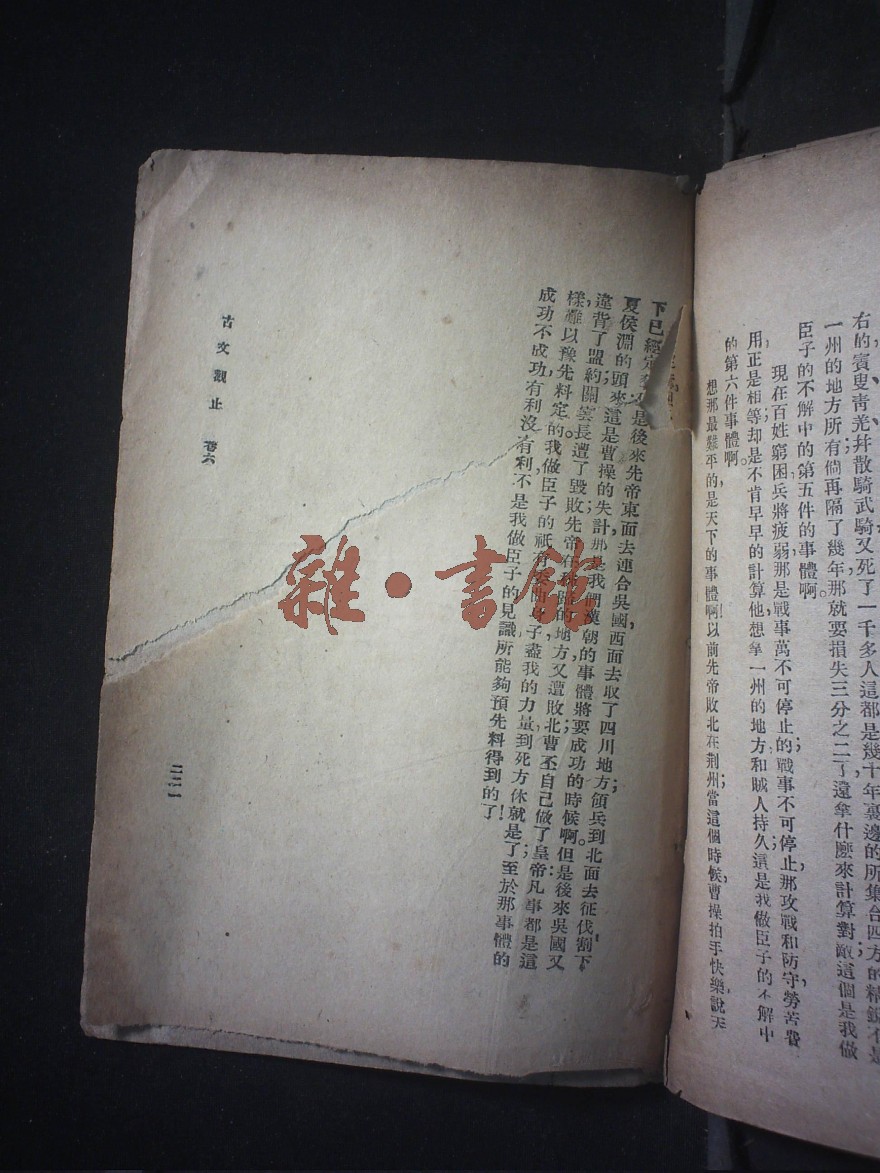 右的賓叟靑羌幷散騎武騎又死了一千多人；這都是幾十年裏邊的所集合四方的精銳不是
一州的地方所有倘再隔了幾年那就要損失三分之二了還拿什麽來計算對敵這個是我做
臣子的不解中的第五件的事體啊。
現在百姓窮困兵將疲弱那是戰事萬不可停止的；戰事不可停止那攻戰和防守勞苦費
用，正是相等却是不肯早早的計算他想拿一州的地方和賊人持久這是我做臣子的不解中
的第六件事體啊。
想那最難平的是天下的事體啊！以前先帝敗北在荆州當這個時候曹操拍手快樂說天
下已經定
是後來先帝東面去連合吳國西面去取了四川地方；領兵到北面去征伐，割下
夏侯淵的頭來；這是曹操的失計；那是我們漢朝的事體將要成功的時候啊。但是後來吳國又
違背了盟約關雲長遭了毀敗先帝在
的地方又遭敗北；曹丕自己做了皇帝：凡事都是這
樣難以豫先料定的。我做臣子的祇有
子盡我的力量到死方休就是了；至於那事體的
成功不成功，有利沒有利，不是我做臣子的見識所能夠預先料得到的了！
古文觀止 卷六
二二一
雜·書館